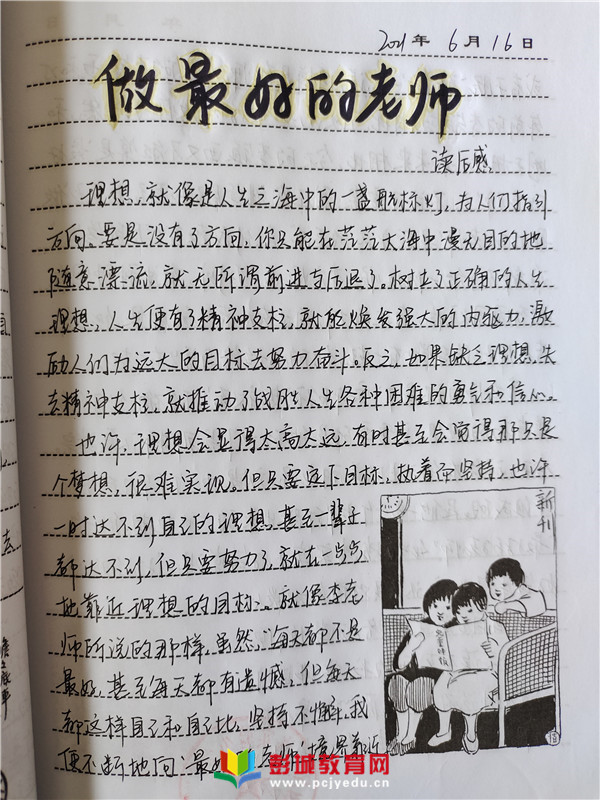 2021年6月16日
做最好的老师
读后感
理想,就像是人生之海中的一盏航标灯,为人们指引
方向。要是没有了方向,你只能在茫茫大海中漫无目的地
随意漂流,就无所谓前进与后退了。树立了正确的人生
理想,人生便有了精神支柱,就能焕发强大的内驱力,激
励人们为远大的目标去努力奋斗。反之,如果缺乏理想,失
去精神支柱,就推动了战胜人生各种困难的勇气和信心。
也许,理想会显得太高太远,有时甚至会觉得那只是
个梦想,很难实现。但只要定下目标,执着而坚持,也许
一时达不到自己的理想,甚至一辈子
都达不到,但只要努力了,就在一点点
地靠近理想的目标。就像李老
师所说的那样,虽然,“每天都不是
最好,甚至每天都有遗憾,但每天
都这样自己和自己比,坚持不懈,我
便不断地向‘最好的老师’境界靠近
新刊
儿童时报
彭城教育网
www.pcjyedu.cn